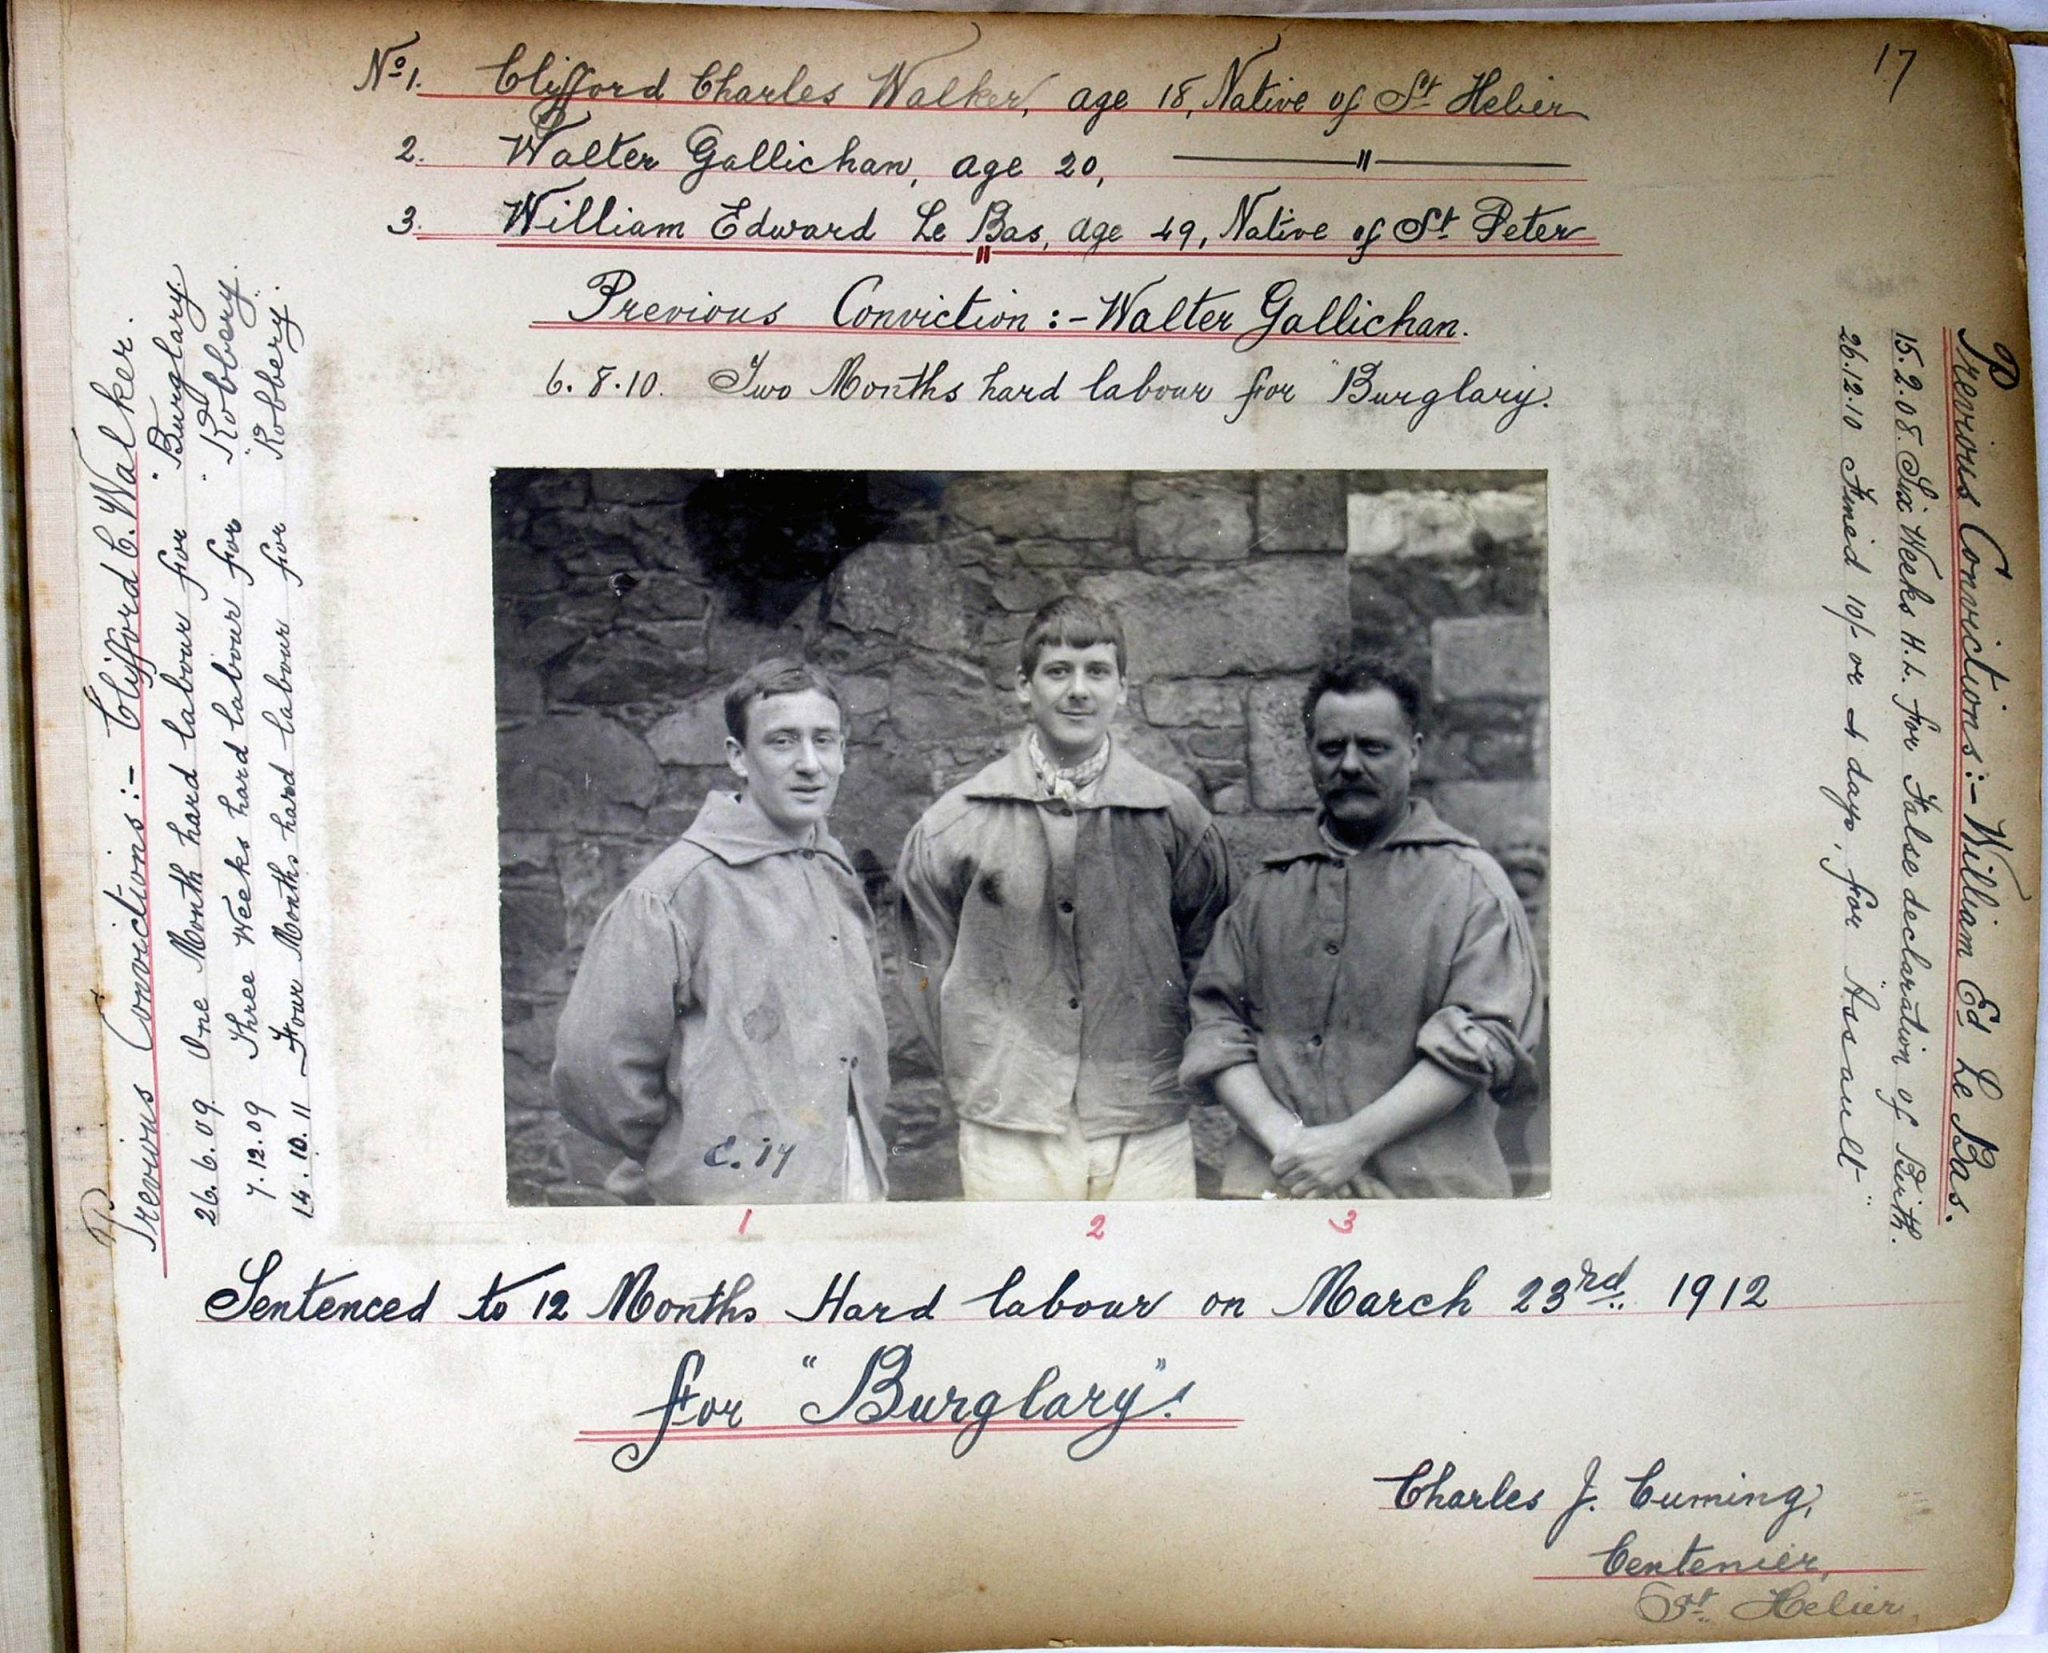 17
No 1. Clifford Charles Walker, age 18, Native of St Helier
2. Walter Gallichan, age 20, ——— " ———
3. William Edward Le Bas, age 49, Native of St Peter
"
Previous Conviction :- Walter Gallichan.
6.8.10. Two Months hard labour for "Burglary.
Previous Convictions :- Clifford C. Walker.
26.6.09 One Month hard labour for "Burglary.
7.12.09 Three Weeks hard labour for "Robbery.
14.10.11 Four Months hard labour for Robbery.
Previous Convictions :- William Ed Le Bas.
15.2.08. Six Weeks H.L. for False declaration of Birth.
26.12.10 Fined 10/- or 4 days, for "Assault"
C. 17
1 2 3
Sentenced to 12 Months Hard labour on March 23rd 1912
for "Burglary".
Charles J. Cuming,
Centenier,
St Helier